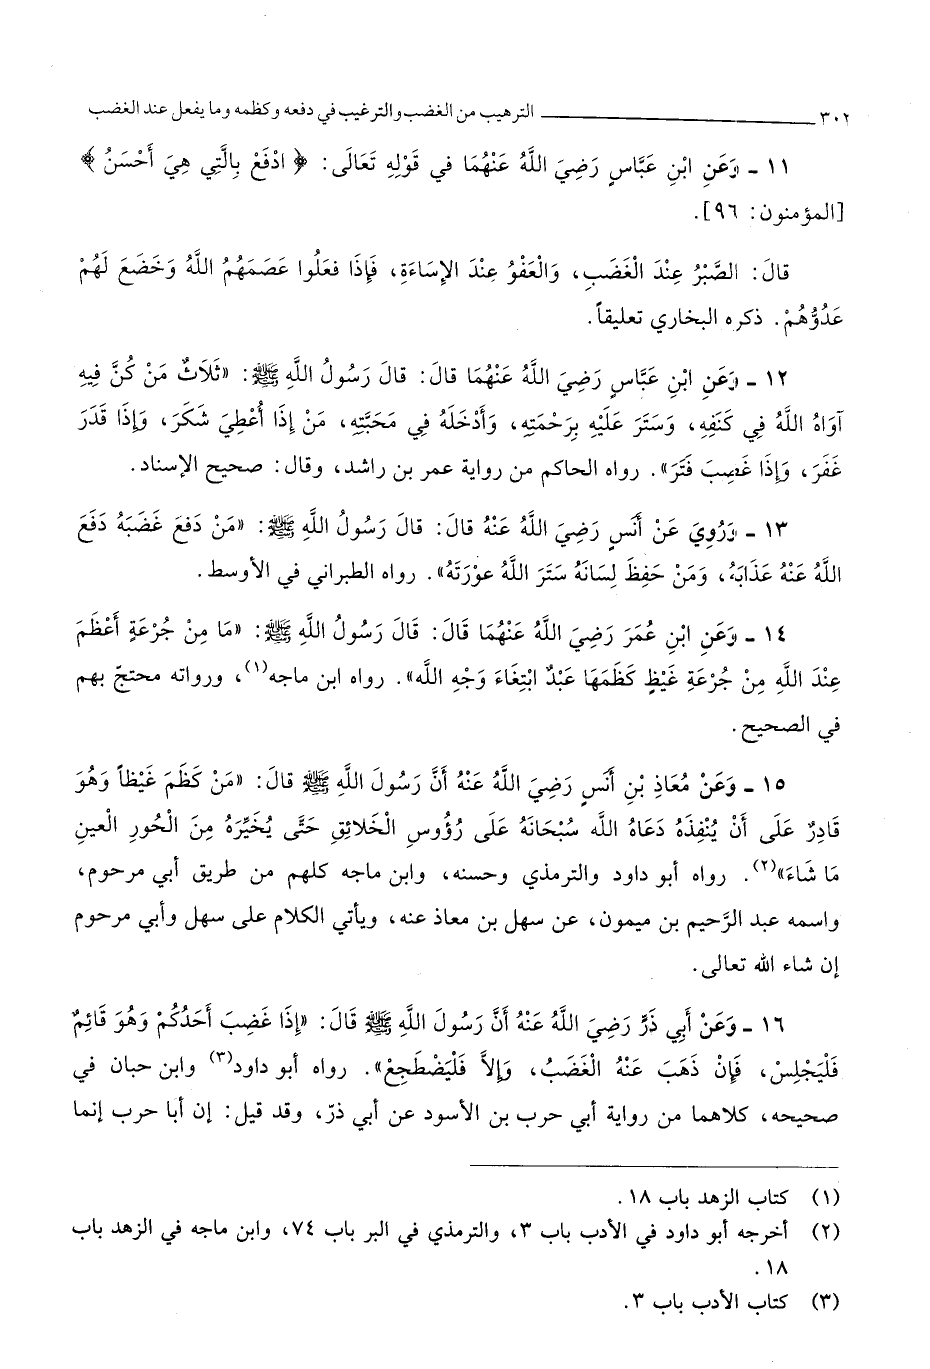 ٣٠٢ ـــــــــــــــــــــــــــــ الترهيب من الغضب والترغيب في دفعه وكظمه وما يفعل عند الغضب
١١ ـ وَعَنِ ابْنِ عَبَّاسٍ رَضِيَ اللَّهُ عَنْهُمَا في قَوْلِهِ تَعَالَى: ﴿ ادْفَعْ بِالَّتِي هِيَ أَحْسَنُ ﴾
[المؤمنون: ٩٦].
قالَ: الصَّبْرُ عِنْدَ الْغَضَبِ، وَالْعَفْوُ عِنْدَ الإِسَاءَةِ، فَإِذَا فعَلُوا عَصَمَهُمُ اللَّهُ وَخَضَعَ لَهُمْ
عَدُوُّهُمْ. ذكره البخاري تعليقاً.
١٢ ـ وَعَنِ ابْنِ عَبَّاسٍ رَضِيَ اللَّهُ عَنْهُمَا قالَ: قالَ رَسُولُ اللَّهِ ﷺ: «ثَلَاثٌ مَنْ كُنَّ فِيهِ
آوَاهُ اللَّهُ فِي كَنَفِهِ، وَسَتَرَ عَلَيْهِ بِرَحْمَتِهِ، وَأَدْخَلَهُ فِي مَحَبَّتِهِ، مَنْ إِذَا أُعْطِيَ شَكَرَ، وَإِذَا قَدَرَ
غَفَرَ، وَإِذَا غَضِبَ فَتَرَ». رواه الحاكم من رواية عمر بن راشد، وقال: صحيح الإسناد.
١٣ ـ وَرُوِيَ عَنْ أَنَسٍ رَضِيَ اللَّهُ عَنْهُ قالَ: قالَ رَسُولُ اللَّهِ ﷺ: «مَنْ دَفَعَ غَضَبَهُ دَفَعَ
اللَّهُ عَنْهُ عَذَابَهُ، وَمَنْ حَفِظَ لِسَانَهُ سَتَرَ اللَّهُ عوْرَتَهُ». رواه الطبراني في الأوسط.
١٤ ـ وَعَنِ ابْنِ عُمَرَ رَضِيَ اللَّهُ عَنْهُمَا قَالَ: قَالَ رَسُولُ اللَّهِ ﷺ: «مَا مِنْ جُرْعَةٍ أَعْظَمَ
عِنْدَ اللَّهِ مِنْ جُرْعَةِ غَيْظٍ كَظَمَهَا عَبْدٌ ابْتِغَاءَ وَجْهِ اللَّه». رواه ابن ماجه(١)، ورواته محتجّ بهم
في الصحيح.
١٥ ـ وَعَنْ مُعَاذِ بْنِ أَنَسٍ رَضِيَ اللَّهُ عَنْهُ أَنَّ رَسُولَ اللَّهِ ﷺ قالَ: «مَنْ كَظَمَ غَيْظاً وَهُوَ
قَادِرٌ عَلَى أَنْ يُنْفِذَهُ دَعَاهُ اللَّه سُبْحَانَهُ عَلَى رُؤُوسِ الْخَلائِقِ حَتَّى يُخَيِّرَهُ مِنَ الْحُورِ الْعينِ
مَا شَاءَ»(٢). رواه أبو داود والترمذي وحسنه، وابن ماجه كلهم من طريق أبي مرحوم،
واسمه عبد الرَّحيم بن ميمون، عن سهل بن معاذ عنه، ويأتي الكلام على سهل وأبي مرحوم
إن شاء الله تعالى.
١٦ ـ وَعَنْ أَبِي ذَرٍّ رَضِيَ اللَّهُ عَنْهُ أَنَّ رَسُولَ اللَّهِ ﷺ قَالَ: «إِذَا غَضِبَ أَحَدُكُمْ وَهُوَ قَائِمٌ
فَلْيَجْلِسْ، فَإِنْ ذَهَبَ عَنْهُ الْغَضَبُ، وَإِلاَّ فَلْيَضْطَجِعْ». رواه أبو داود(٣) وابن حبان في
صحيحه، كلاهما من رواية أبي حرب بن الأسود عن أبي ذرّ، وقد قيل: إن أبا حرب إنما
(١) كتاب الزهد باب ١٨.
(٢) أخرجه أبو داود في الأدب باب ٣، والترمذي في البر باب ٧٤، وابن ماجه في الزهد باب
١٨.
(٣) كتاب الأدب باب ٣.